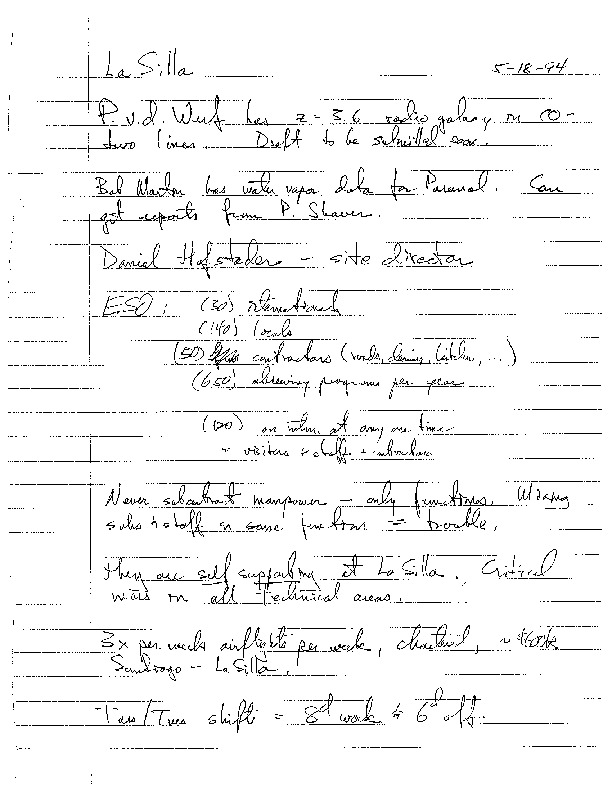 La Silla 5-18-94
P. v.d. Werf has z = 3.6 radio galaxy in CO -
two lines. Draft to be submitted soon.
Bob Martin has water vapor data for Paranal. Can
get reports from P. Shaver.
Daniel Hofstader - site director
ESO: (30) international
(140) locals
(50) contractors (roads, cleaning, kitchen, ...)
(650) observing programs per year
(120) on mtn. at any one time
- visitors + staff +
Never subcontract manpower - only functions. Mixing
subs + staff in same function = trouble.
They are self supporting at La Silla. Critical
on all technical areas.
3x per week airflights per week, chartered, ~
Santiago - La Silla.
Tues/Tues shift = 8d work + 6d off.